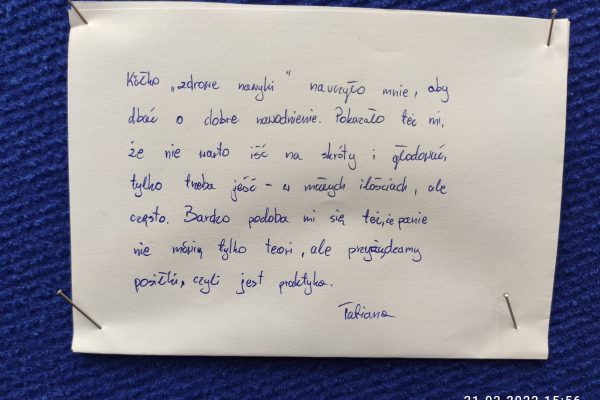 Kółko „zdrowe nawyki" nauczyło mnie, aby
dbać o dobre nawodnienie. Pokazało też mi,
że nie warto iść na skróty i głodować,
tylko trzeba jeść - w małych ilościach, ale
często. Bardzo podoba mi się też, że panie
nie mówią tylko teori, ale przyrządzamy
posiłki, czyli jest praktyka.
Tatiana